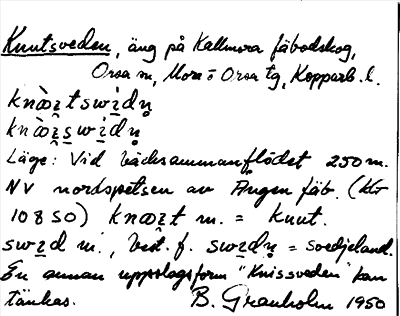 Knutsveden, äng på Kallmora fäbodskog,
Orsa sn, Mora o Orsa tg, Kopparb. l.
Läge: Vid bäcksammanflödet 250 m.
NV nordspetsen av Ången fäb. (kbl
10850) knæ̀ɪt m. = knut.
swɪd m., best. f. swɪdn̥ = svedjeland.
En annan uppslagsform "Knissveden" kan
tänkas. B. Granholm 1950